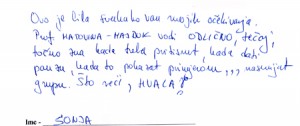 Ovo je bilo svakako van mojih očekivanja.
Prof MATOVINA-HAJDUK vodi ODLIČNO, tečaj
točno zna kada treba pritisnut, kada dati
pauzu, kada to pokazat primjerom,,, nasmijat
grupu. Što reći, HVALA
Ime - SONJA